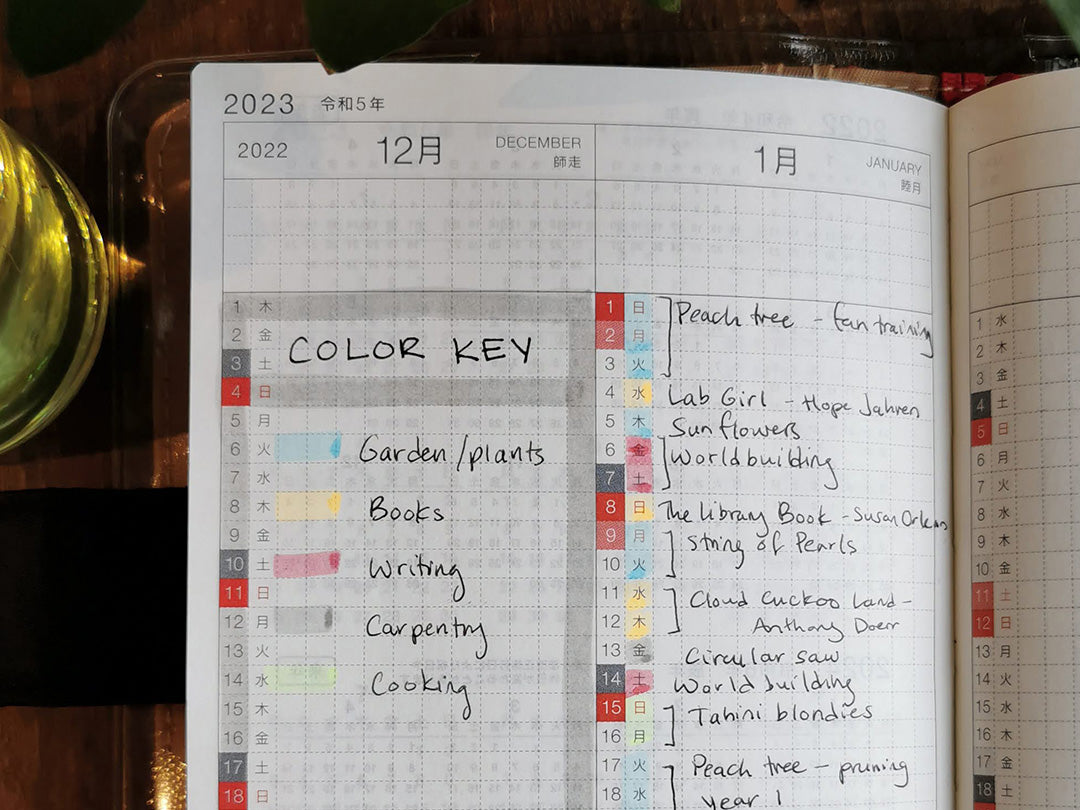 2023 令和5年
2022 12月 DECEMBER
師走
1 木
2 金
3 土
COLOR KEY
4 日
5 月
6 火 Garden/plants
7 水
8 木 Books
9 金
10 土 Writing
11 日
12 月 Carpentry
13 火
14 水 Cooking
15 木
16 金
17 土
18 日
1月 JANUARY
睦月
1 日 Peach tree - fan training
2 月
3 火
4 水 Lab Girl - Hope Jahren
5 木 Sunflowers
6 金 Worldbuilding
7 土
8 日 The Library Book - Susan Orlean
9 月 String of Pearls
10 火
11 水 Cloud Cuckoo Land -
12 木 Anthony Doerr
13 金 Circular saw
14 土 World building
15 日 Tahini blondies
16 月
17 火 Peach tree - pruning
18 水 year 1
1 水
2 木
3 金
4 土
5 日
6 月
7 火
8 水
9 木
10 金
11 土
12 日
13 月
14 火
15 水
16 木
17 金
18 土